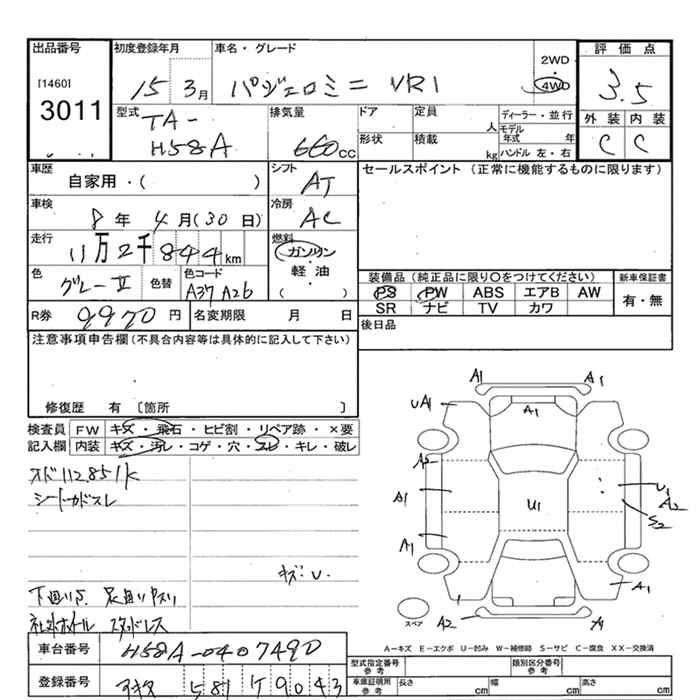 出品番号 初度登録年月 車名・グレード 2WD ・ 4WD 評価点
[1460]
3011
15 3月 パジェロミニ VR1 3.5
型式 TA-H58A 排気量 660cc ドア 定員 人 ディーラー・並行
形状 積載 kg モデル年式 年 ハンドル 左・右
外装 内装
C C
車歴 自家用・( ) シフト AT
セールスポイント (正常に機能するものに限ります)
車検 8年 4月(30日) 冷房 AC
走行 11万2千844km 燃料 ガソリン・軽油 ( )
色 グレーII 色替 色コード A37 A26
装備品 (純正品に限り○をつけてください) 新車保証書
PS PW ABS エアB AW 有・無
SR ナビ TV カワ
R券 9970円 名変期限 月 日
後日品
注意事項申告欄(不具合内容等は具体的に記入して下さい)
修復歴 有 〔箇所 〕
検査員記入欄 FW キズ・飛石・ヒビ割・リペア跡・×要
内装 キズ・汚レ・コゲ・穴・スレ・キレ・破レ
オド112851K
シート・カドスレ
キズ:U.
下回りS 足回りサスリ
社外ホイール スタッドレス
A1 A1
UA1 A1
A2
A1 U1 U1 A2
S2
A1
A1
スペア A2 A1
A-キズ E-エクボ U-凹み W-補修跡 S-サビ C-腐食 XX-交換済
車台番号 H58A-0407490
型式指定番号 参考 類別区分番号 参考
登録番号 581 ケ 9043
車庫証明用 参考 長さ cm 幅 cm 高さ cm